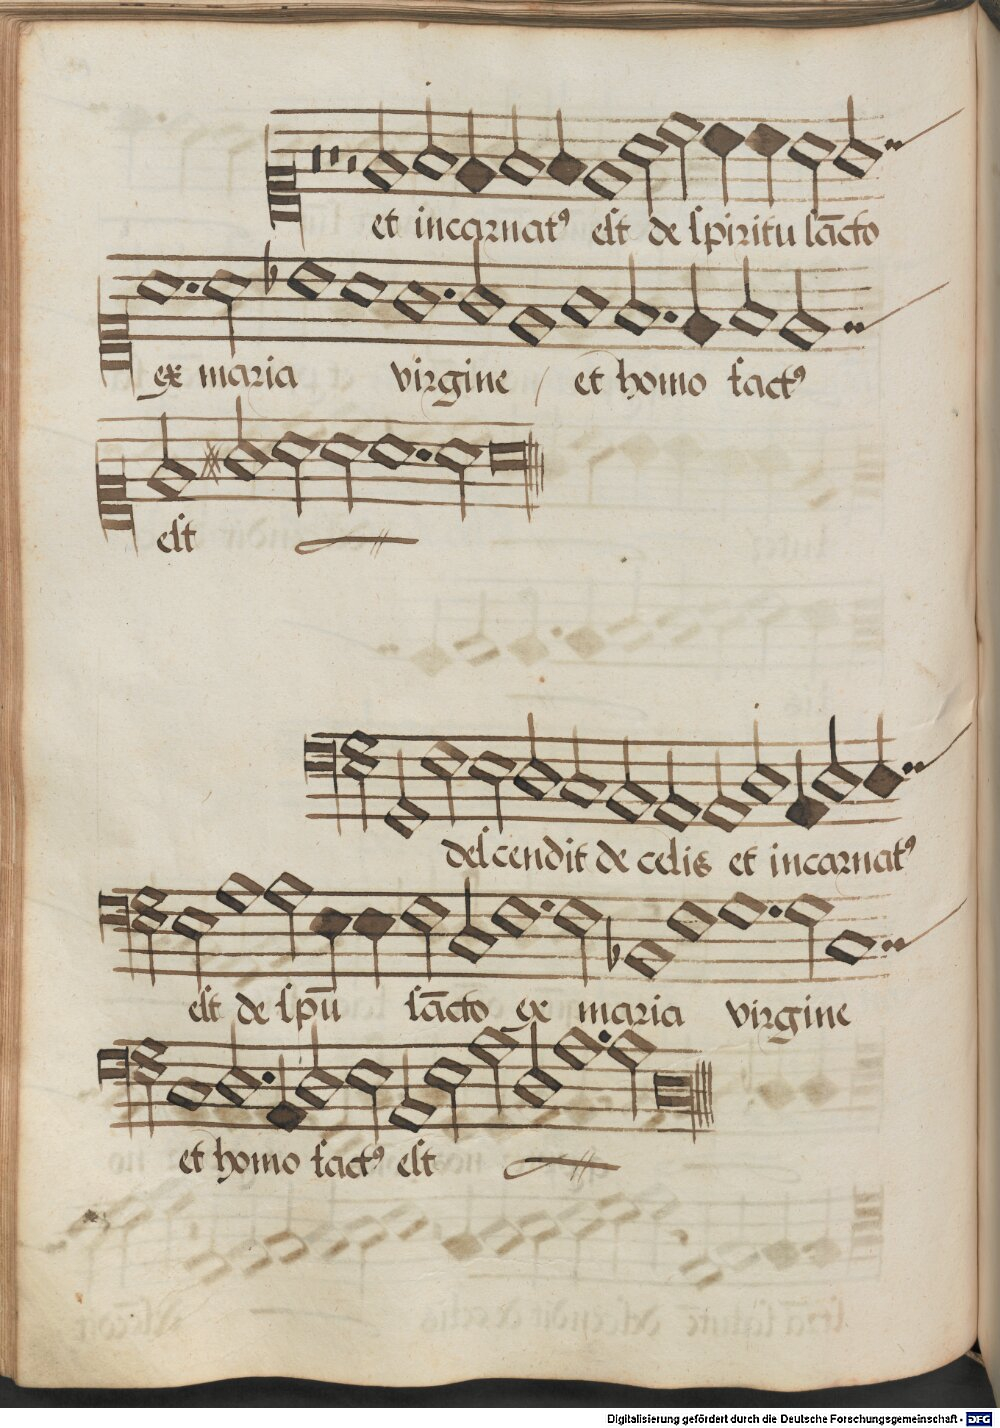 et incarnatꝰ est de spiritu sācto
ex maria virgine / et homo factꝰ
est
descendit de celis et incarnatꝰ
est de spū sācto ex maria virgine
et homo factꝰ est
Digitalisierung gefördert durch die Deutsche Forschungsgemeinschaft - DFG